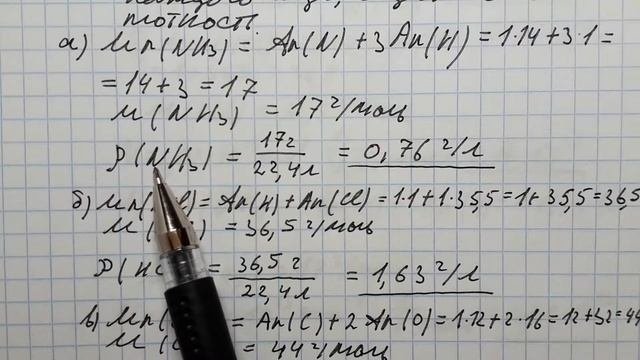 плотность.
а) Mr(NH₃) = Ar(N) + 3Ar(H) = 1·14 + 3·1 =
= 14 + 3 = 17
M(NH₃) = 17 г/моль
ρ(NH₃) = 17г/22,4л = 0,76 г/л
б) Mr( l) = Ar(H) + Ar(Cl) = 1·1 + 1·35,5 = 1 + 35,5 = 36,5
M( ) = 36,5 г/моль
ρ(HC = 36,5г/22,4л = 1,63 г/л
в) Mr( = Ar(C) + 2Ar(O) = 1·12 + 2·16 = 12 + 32 = 44
M( = 44 г/моль